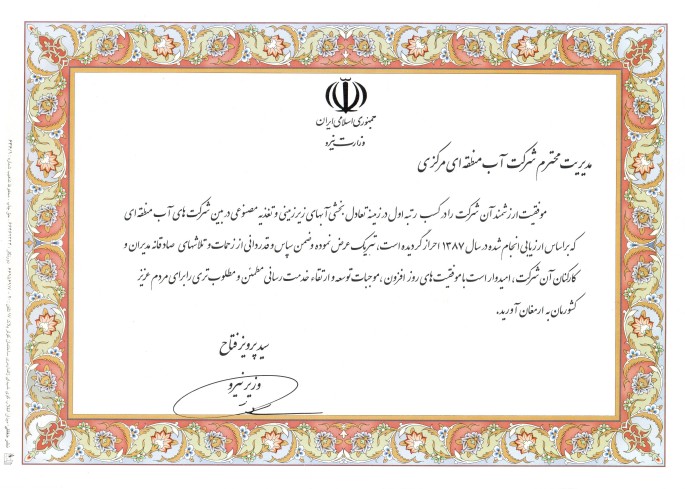 جمهوری اسلامی ایران
وزارت نیرو
مدیریت محترم شرکت آب منطقه ای مرکزی
موفقیت ارزشمند آن شرکت را در کسب رتبه اول در زمینه تعادل بخشی آبهای زیرزمینی و تغذیه مصنوعی در بین شرکت های آب منطقه ای
که براساس ارزیابی انجام شده در سال ۱۳۸۷ احراز گردیده است، تبریک عرض نموده و ضمن سپاس و قدردانی از زحمات و تلاشهای صادقانه مدیران و
کارکنان آن شرکت، امیدوار است با موفقیت های روز افزون، موجبات توسعه و ارتقاء خدمت رسانی مطمئن و مطلوب تری را برای مردم عزیز
کشورمان به ارمغان آورید.
سید پرویز فتاح
وزیر نیرو